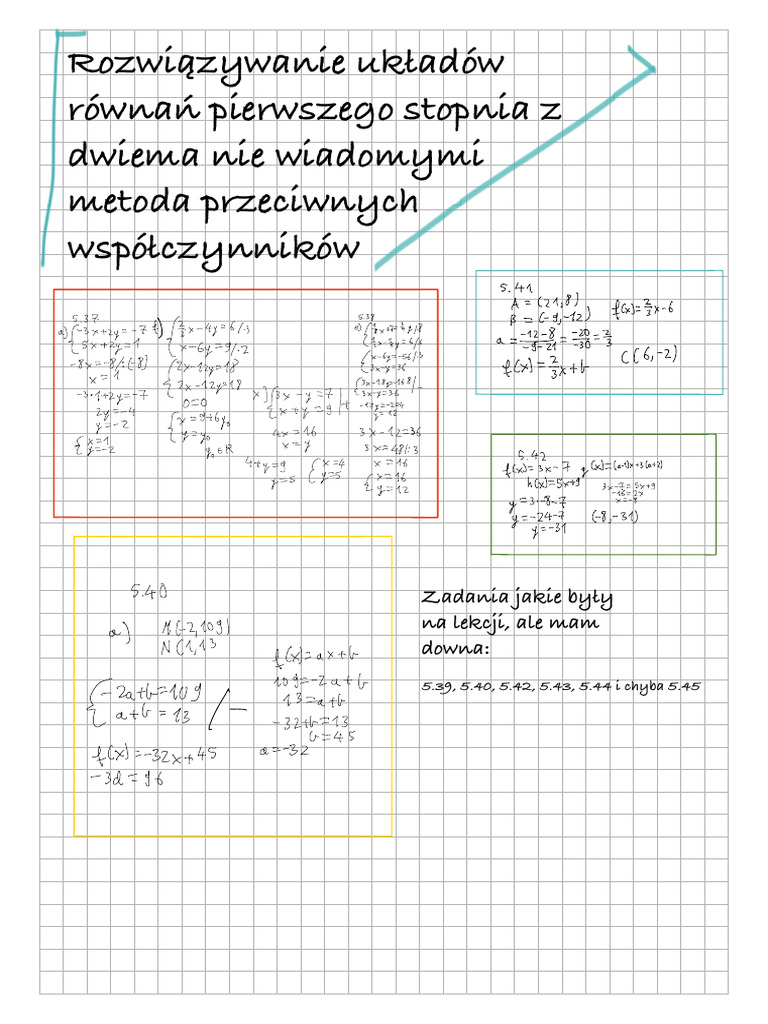 Rozwiązywanie układów
równań pierwszego stopnia z
dwiema nie wiadomymi
metoda przeciwnych
współczynników
5.37
a) {-3x+2y=-7
{5x+2y=1
-8x=-8/:(-8)
x=1
-3·1+2y=-7
2y=-4
y=-2
{x=1
{y=-2
{2/3x-4y=6/·3
{x-6y=9/·2
{2x-12y=18
{2x-12y=18
0=0
{x=9+6y₀
{y=y₀
y₀∈R
{3x-y=7
{x+y=9 /+
4x=16
x=y
4+y=9
y=5
{x=4
{y=5
5.38
{x-6y=-56/·3
{3x-y=36
{3x-18y=-168/-
3x-y=36
y=12
3x-12=36
3x=48/:3
x=16
{x=16
{y=12
5.41
A=(21,8)
B=(-9,-12)
f(x)=2/3x-6
a=-12-8/-9-21=-20/-30=2/3
f(x)=2/3x+b
C(6,-2)
5.42
f(x)=3x-7 g(x)=(a-1)x+3(a+2)
h(x)=5x+9
3x-7=5x+9
-16=2x
x=-8
y=3·-8-7
y=-24-7
y=-31
(-8,-31)
5.40
a) M(-2,109)
N(1,13
{-2a+b=109
{a+b=13 /-
f(x)=-32x+45
-3a=96
f(x)=ax+b
109=-2a+b
13=a+b
-32+b=13
b=45
a=-32
Zadania jakie były
na lekcji, ale mam
downa:
5.39, 5.40, 5.42, 5.43, 5.44 i chyba 5.45